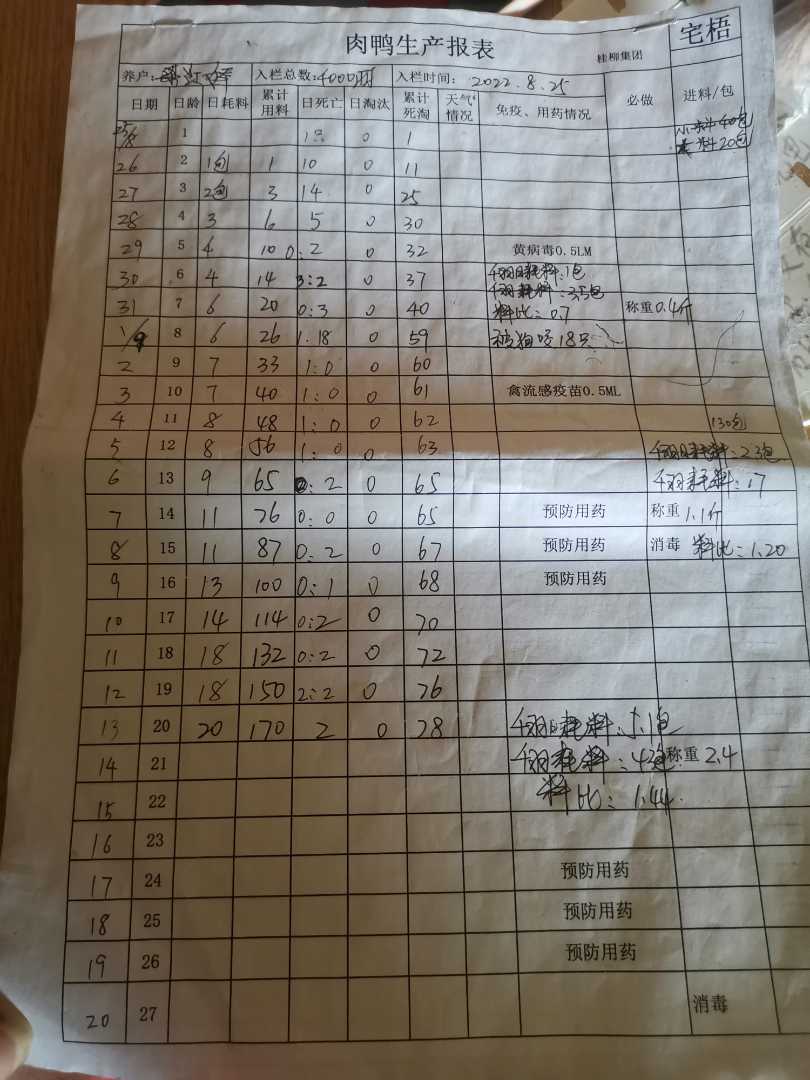 肉鸭生产报表 桂柳集团 宅梧
养户: 入栏总数:4000羽 入栏时间: 2022.8.25
日期 日龄 日耗料 累计用料 日死亡 日淘汰 累计死淘 天气情况 免疫、用药情况 必做 进料/包
25/8 1 1只 0 1 40包
料20包
26 2 1包 1 10 0 11
27 3 2包 3 14 0 25
28 4 3 6 5 0 30
29 5 4 10 0:2 0 32 黄病毒0.5LM
30 6 4 14 3:2 0 37 千羽日耗料:1包
千羽耗料:3.5包
31 7 6 20 0:3 0 40 料比:0.7 称重0.4斤
1/9 8 6 26 1.18 0 59 被狗咬18只
2 9 7 33 1:0 0 60
3 10 7 40 1:0 0 61 禽流感疫苗0.5ML
4 11 8 48 1:0 0 62 130包
5 12 8 56 1:0 0 63 千羽日耗料:2.3包
6 13 9 65 0:2 0 65 千羽耗料:17
7 14 11 76 0:0 0 65 预防用药 称重1.1斤
8 15 11 87 0:2 0 67 预防用药 消毒 料比:1.20
9 16 13 100 0:1 0 68 预防用药
10 17 14 114 0:2 0 70
11 18 18 132 0:2 0 72
12 19 18 150 2:2 0 76
13 20 20 170 2 0 78 千羽日耗料:5.1包
14 21 千羽耗料:42包 称重2.4
15 22 料比:1.44
16 23
17 24 预防用药
18 25 预防用药
19 26 预防用药
20 27 消毒